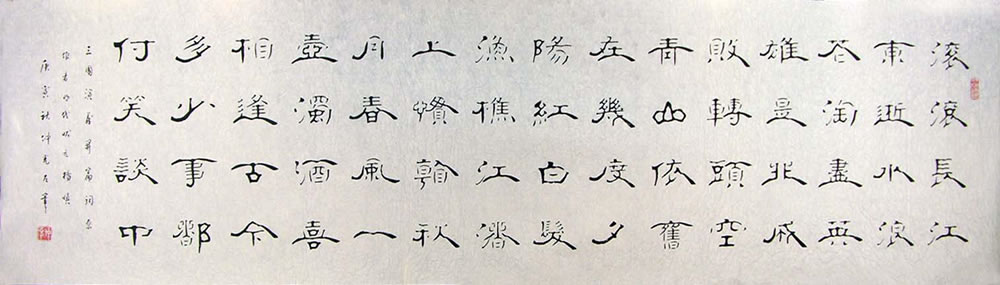 滚滚長江
東逝水浪
花淘盡英
雄是非成
敗轉頭空
青山依舊
在幾度夕
陽紅白髮
漁樵江渚
上慣看秋
月春風一
壺濁酒喜
相逢古今
多少事都
付笑談中
三國演義開篇詞
作者明代楊慎
庚寅秋